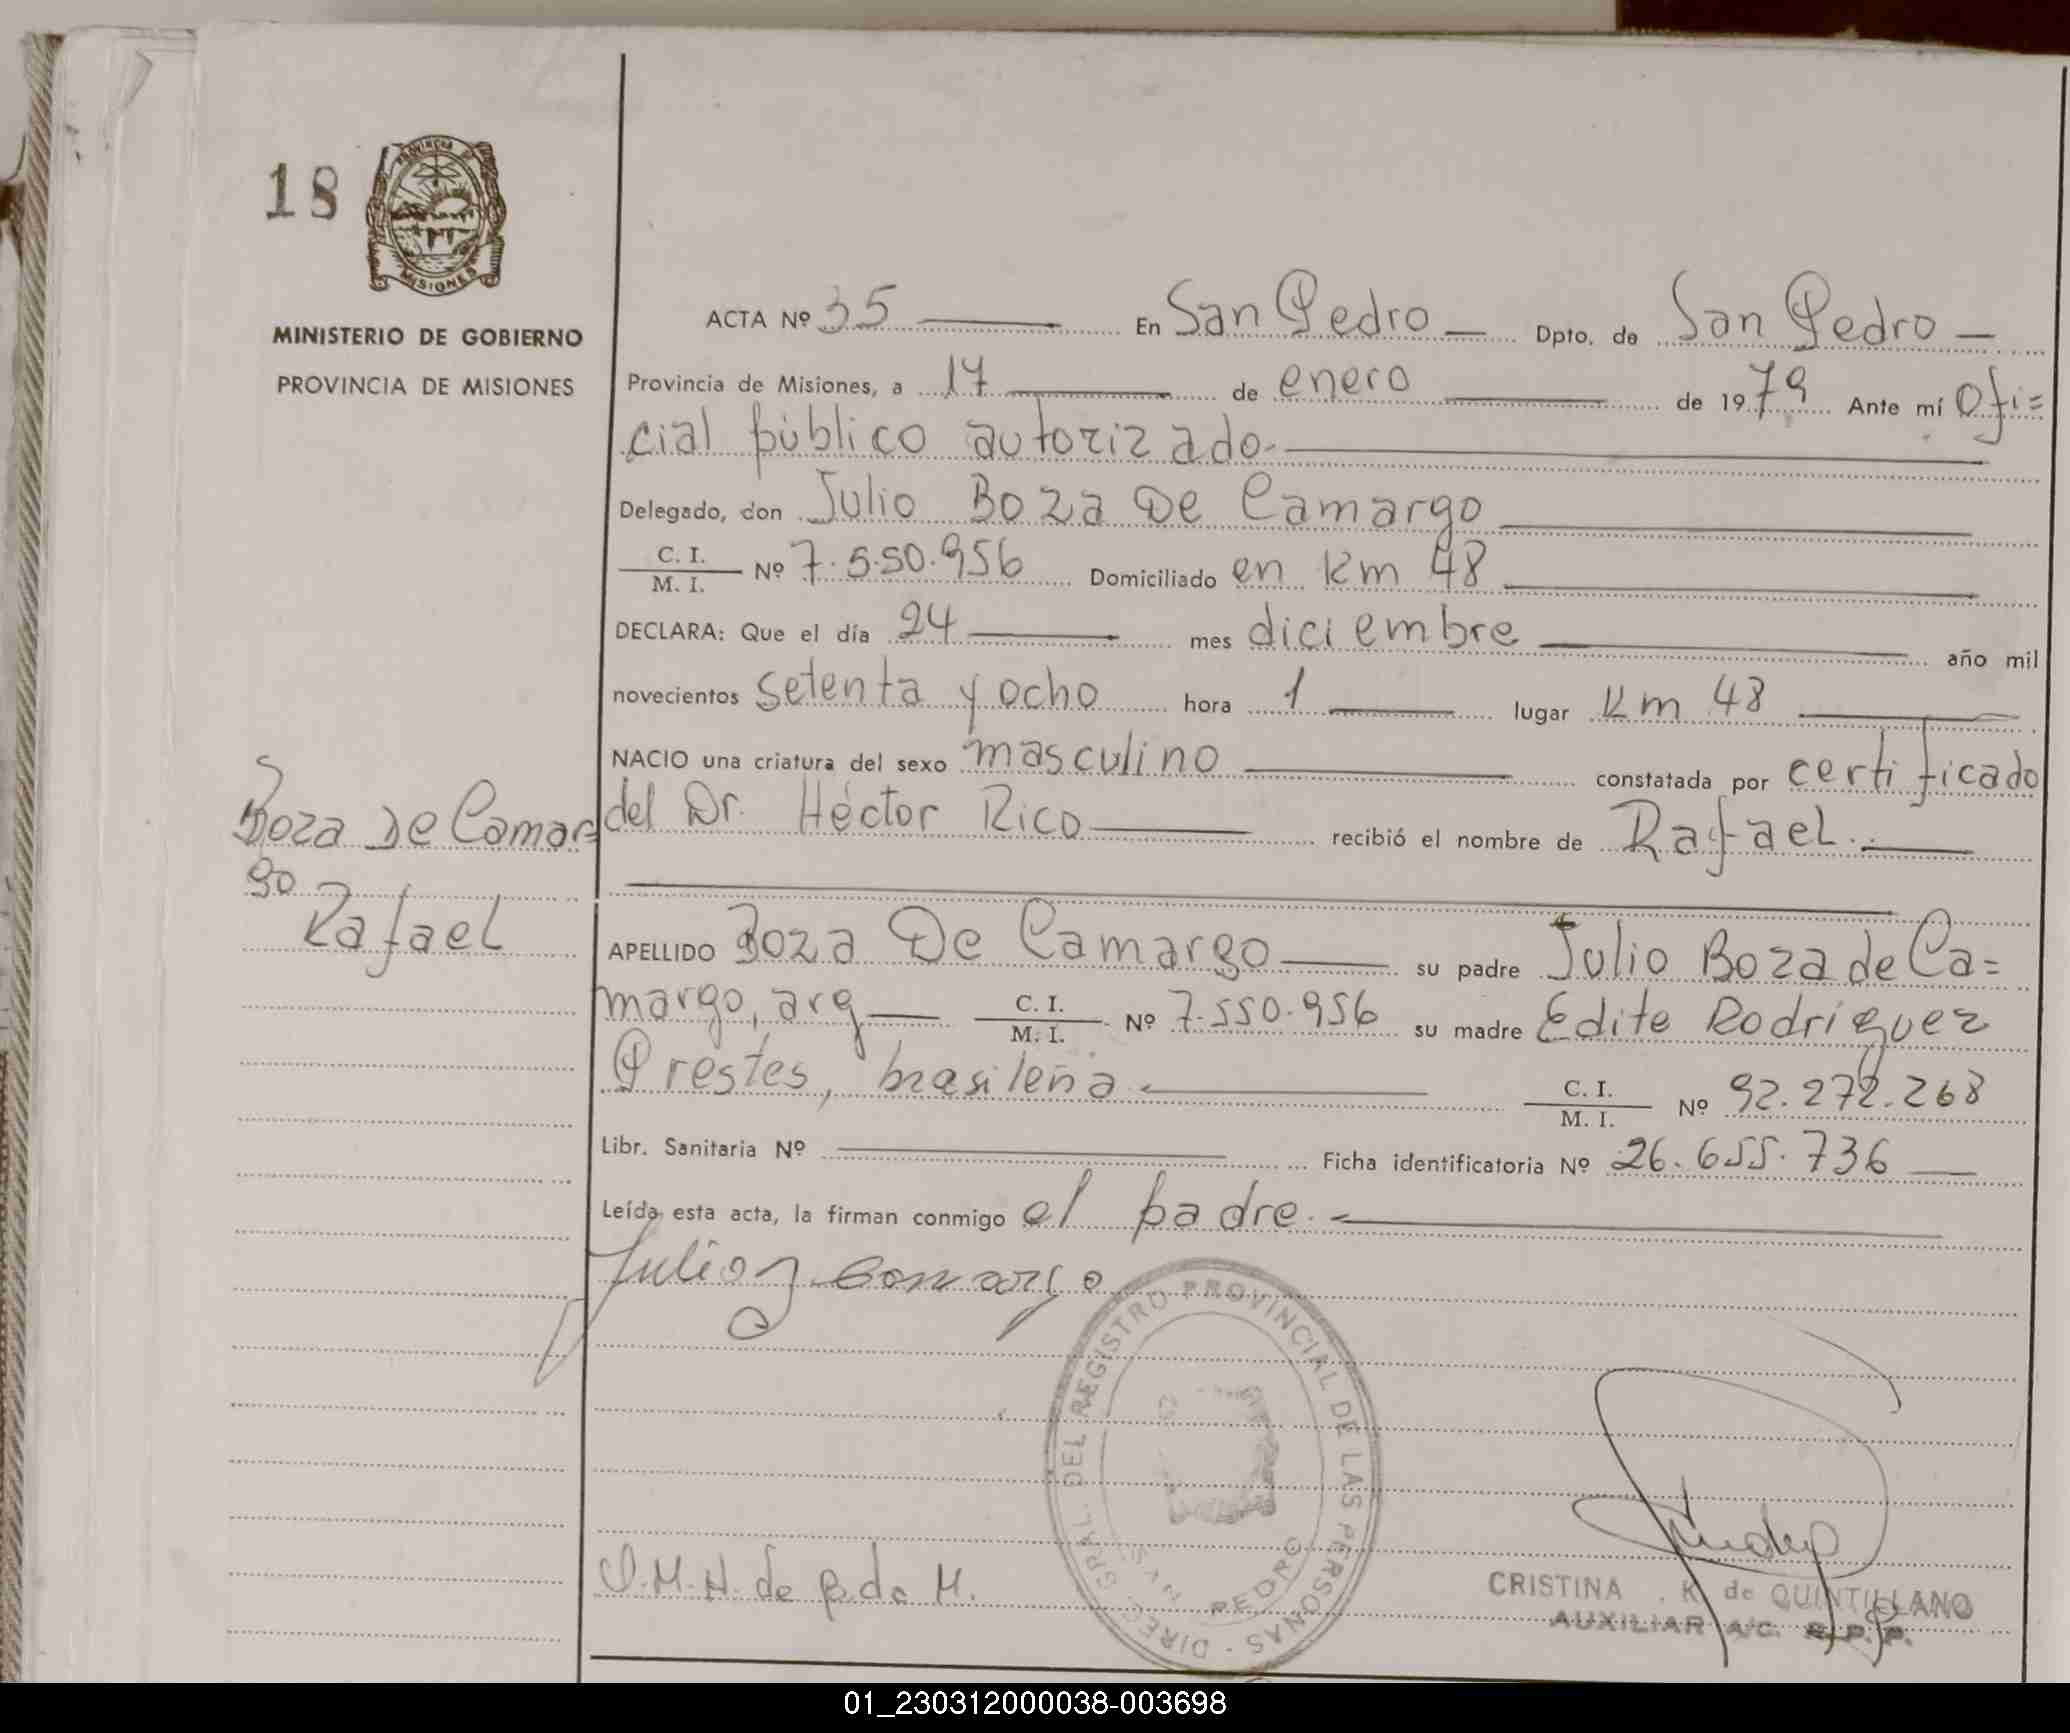 18
PROVINCIA DE
MISIONES
MINISTERIO DE GOBIERNO
PROVINCIA DE MISIONES
ACTA Nº 35 En San Pedro Dpto. de San Pedro
Provincia de Misiones, a 17 de enero de 1979 Ante mí Ofi=
cial público autorizado.
Delegado, don Julio Boza De Camargo
C. I.
M. I. Nº 7.550.956 Domiciliado en Km 48
DECLARA: Que el día 24 mes diciembre año mil
novecientos setenta y ocho hora 1 lugar Km 48
NACIO una criatura del sexo masculino constatada por certificado
del Dr. Héctor Rico recibió el nombre de Rafael.
Boza De Camar=
go
Rafael
APELLIDO Boza De Camargo su padre Julio Boza de Ca=
margo, arg C. I.
M. I. Nº 7.550.956 su madre Edite Rodríguez
Prestes, brasileña. C. I.
M. I. Nº 92.272.268
Libr. Sanitaria Nº Ficha identificatoria Nº 26.655.736
Leída esta acta, la firman conmigo el padre.
Julio Camargo
DIREC. GRAL. DEL REGISTRO PROVINCIAL DE LAS PERSONAS
SAN PEDRO
de B. de M.
CRISTINA K. de QUINTILLANO
AUXILIAR A/C. R. P. P.
01_230312000038-003698